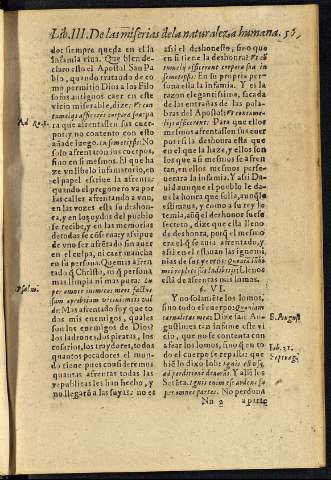 Lib. III. De las miserias de la naturaleza humana. 56
dos siempre queda en el la
infamia viua. Que bien de-
claro esto el Apostol San Pa-
blo, quando tratando de co
mo permitio Dios a los Fi-
losofos antiguos caer en este
vicio miserable, dize: Vt con
tumelijs afficiant corpora sua
ra que afrentassen sus cuer-
pos, y no contento con esto
añade luego. in semetipsis: No
solo afrentando sus cuerpos,
sino en si mesmos. El que ha
ze vn libelo infamatorio, en
el papel escriue la afrenta:
quando el pregonero va por
las calles afrentando a vno,
en las vozes esta su deshon-
ra, y en los oydos del pueblo
se recibe, y en las memorias
de todos se conserua, y assi pue
de vno ser afrentado sin auer
en el culpa, ni caer mancha
en su persona. Quien mas afren
tado q̃ Christo, ni q̃ persona
mas limpia ni mas pura:
super omnes inimicos meos factus
sum opprobrium vicinis meis val
de. Mas afrentado soy que to
dos mis enemigos, quales
son los enemigos de Dios?
los ladrones, los piratas, los
cosarios, los traydores, todos
quantos pecadores el mun-
do tiene pues consideremos
quantas afrentas todas las
republicas les han hecho, y
no llegarõ a las suyas: no es
Ad Rom.
Psalm.
assi el deshonesto, sino que
en si tiene la deshonra: Vt con
tumelijs afficiant corpora sua in
semetipsis: En su propria per-
sona esta la infamia. Y es la
razon elegantissima, sacada
de las entrañas de las pala-
bras del Apostol: Vt contume-
lijs afficiant: Para que ellos
mesmos afrentassen sus cuer
pos: si la deshonra esta que
en el que la haze, y ellos son
los que assi mesmos se afren
tan, en ellos mesmos perse-
uerara la infamia. Y assi Da
uid aunque el pueblo le da-
ua la honra que solia, aunque
estimaua, y como a su rey le
temia, aũ q̃ el deshonor fue
secreto, dize que esta lleno
de deshonra, porq̃ el mesmo
era el q̃ se auia afrentado, y
assi en el estauan las ignomi-
nias de sus yerros: Quoniã lum-
bi mei repleti sunt illusionibus, Llenos
està de afrentas mis lomos.
§. VI.
Y no solamẽte los lomos,
sino todo el cuerpo:
dize san Au-
gustin: es tan infame este vi
cio, que no se contenta con
afear los lomos, sino q̃ en to
do el cuerpo se reparte: que
biẽ lo dixo Iob: Ignis est vsque
ad perditionẽ deuorans. Y assi los
Setẽta. Ignis enim est ardens
per omnes partes. No perdona
Nn 2 a parte
B. August.
Iob. 31.
Septuag.